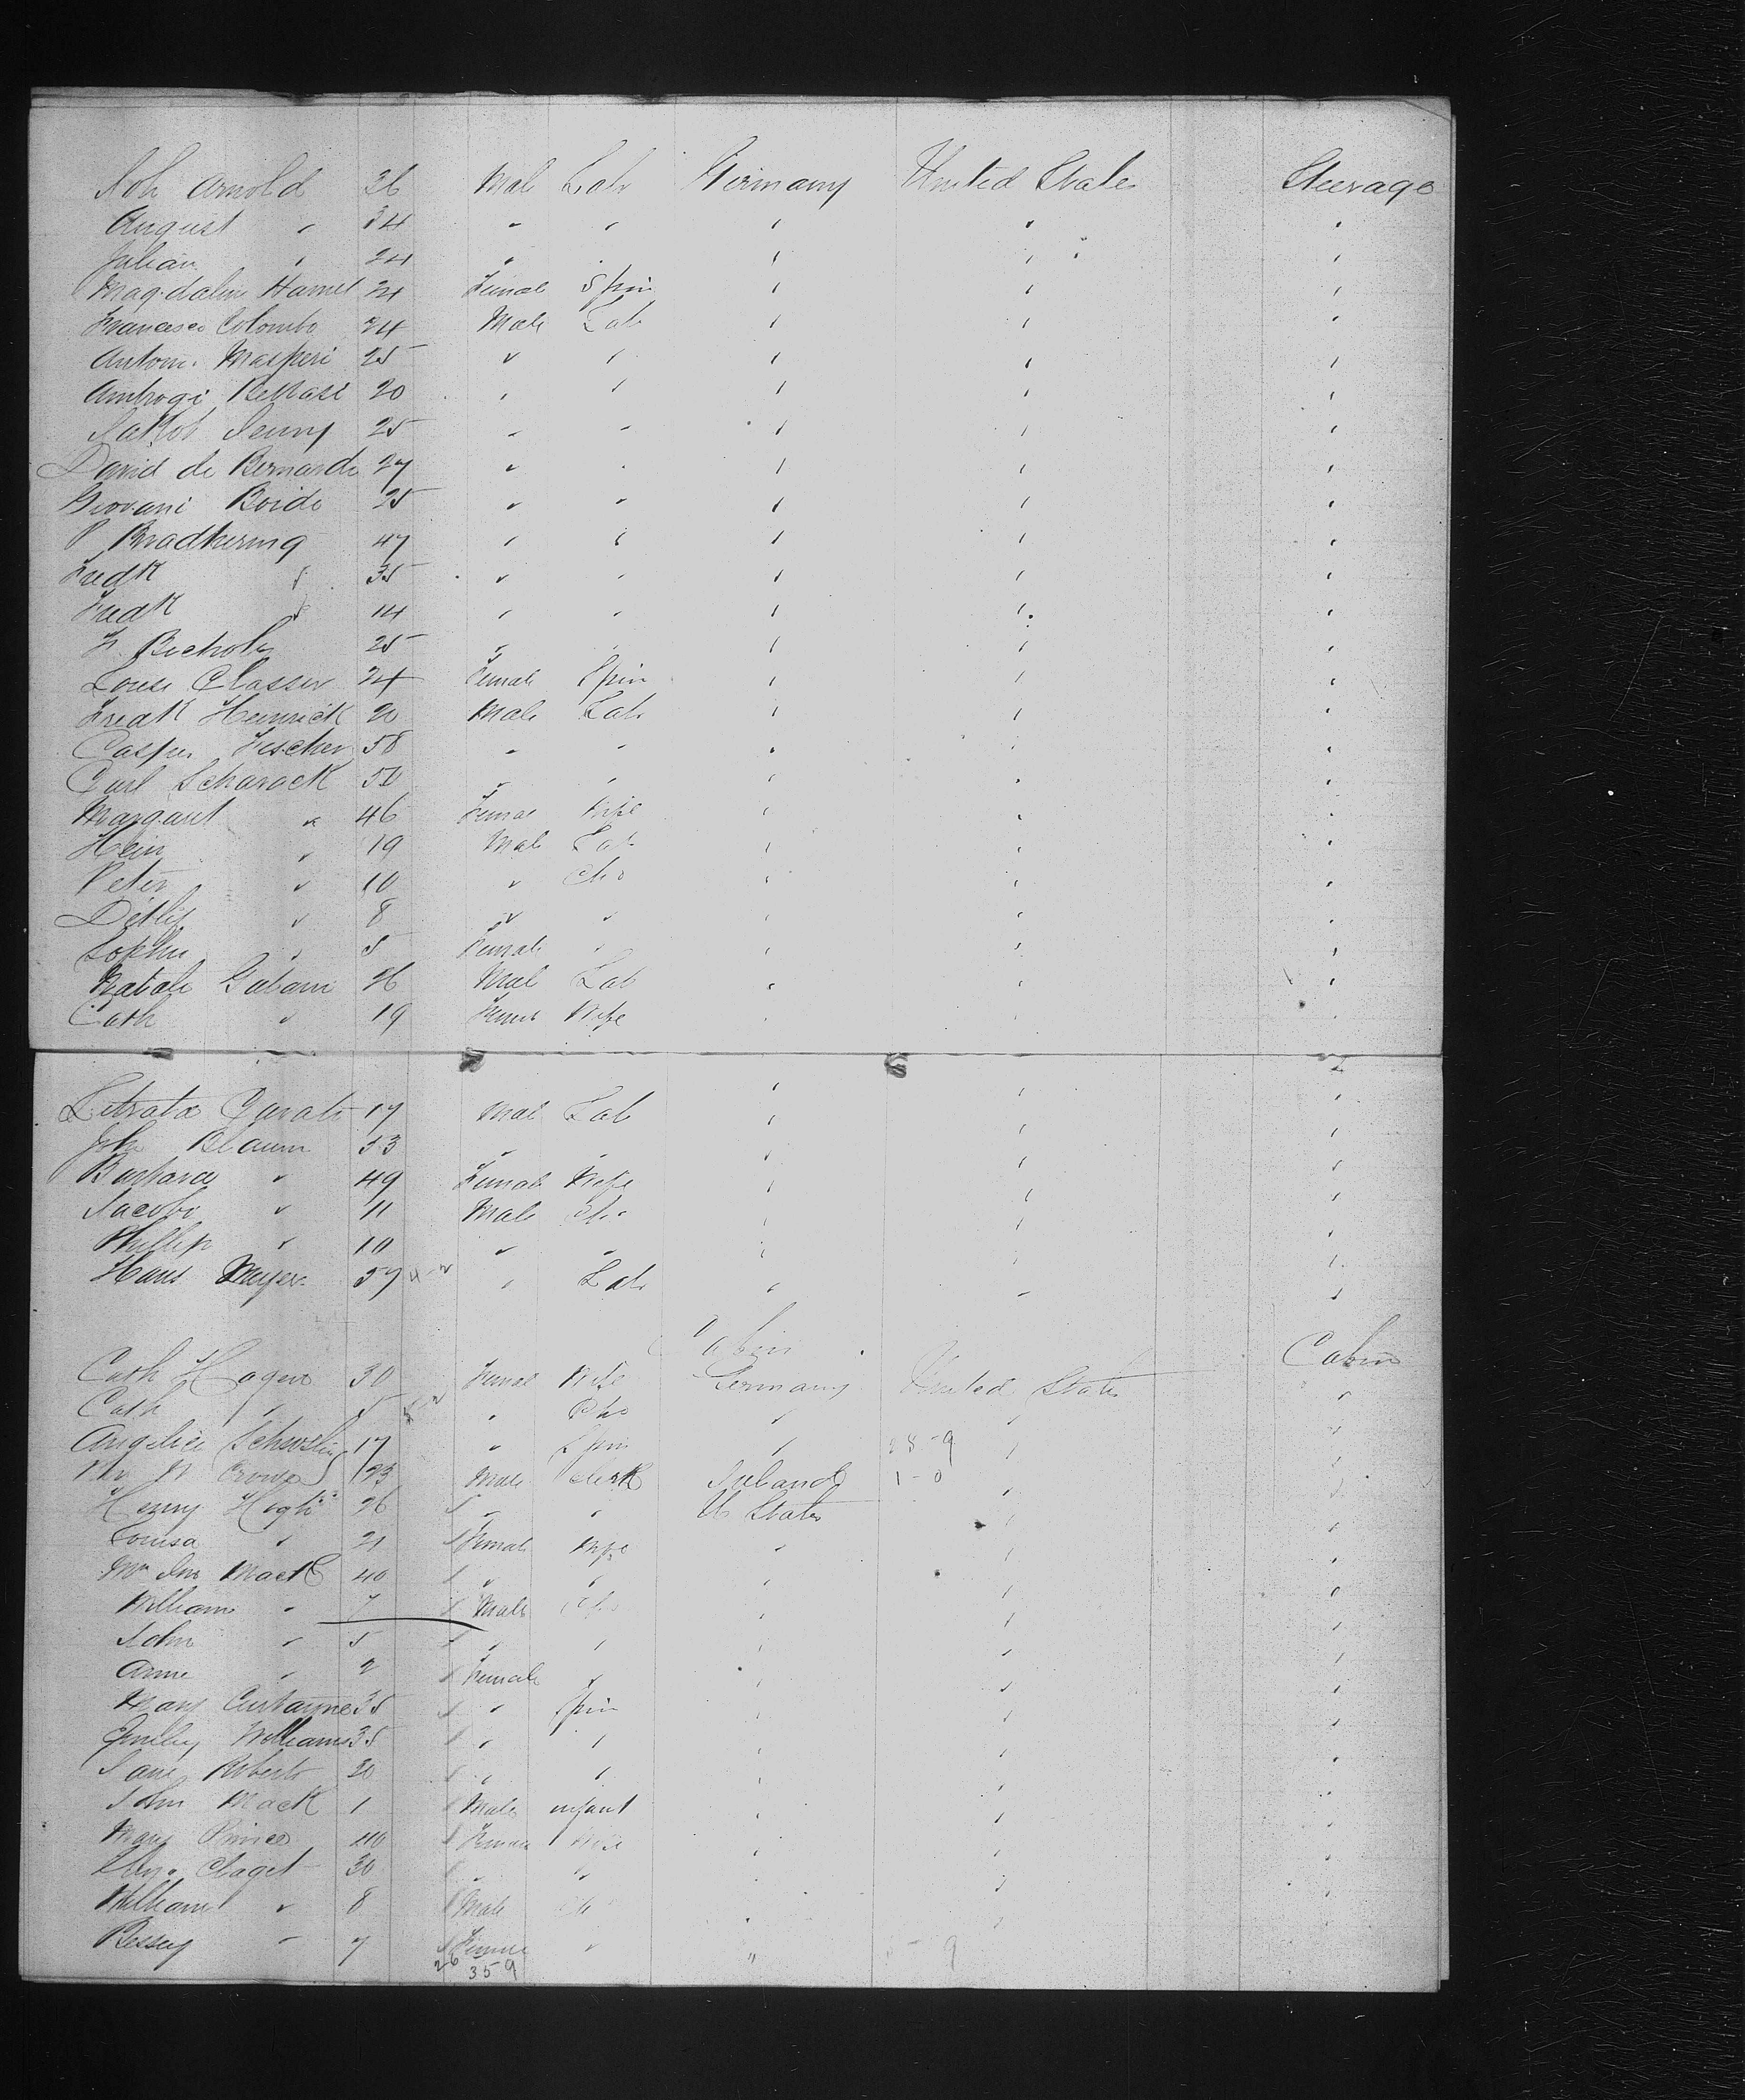 Joh Arnold 36 Male Lab Germany United States Steerage
August " 34 " " " " "
Julian " 24 " " " " "
Magdalin Hamel 24 Female Spin " " "
Francesco Colombo 24 Male Lab " " "
Antoni Masperi 25 " " " " "
Ambrogi 20 " " " " "
Jakob Jenny 25 " " " " "
David de Bernardi 27 " " " " "
Giovani Boido 25 " " " " "
P Bradhering 47 " " " " "
Fredk " 35 " " " " "
Fredk " 14 " " " " "
25 " " " " "
Louise Classer 24 Female Spin " " "
Fredk Heinrick 20 Male Lab " " "
Casper Fischer 58 " " " " "
Carl Scharack 50 " " " " "
Margaret " 46 Female Wife " " "
Hein " 19 Male Lab " " "
Peter " 10 " Chd " " "
Detlif " 8 " " " " "
Sophie " 5 Female " " " "
Natale Gabani 26 Male Lab " " "
Cath " 19 Female Wife " " "
17 Male Lab " " "
John Blaum 53 " " " " "
Barbara " 49 Female Wife " " "
Jacob " 11 Male Chd " " "
Phillip " 10 " " " " "
Hans Meyer 57 " Lab " " "
Cabin
Cath Hagen 30 Female Wife Germany United States Cabin
Cath " 5 " Chd " " "
Angelice 17 " Spin " "
23 Male Clerk Ireland 1-0 "
Henry High 26 " " U States " "
Louisa " 21 Female Wife " " "
Mrs Jno Mack 40 " " " " "
William " 7 Male Chd " " "
John " 5 " " " " "
Anne " 2 Female " " " "
Mary 35 " Spin " " "
Emiley Williams 35 " " " " "
Jane Roberts 20 " " " " "
John Mack 1 Male infant " " "
Mary Prince 40 Female Wife " " "
Claget 30 " " " " "
William " 8 Male Ch " " "
Bessey " 7 Female " " "
26 359